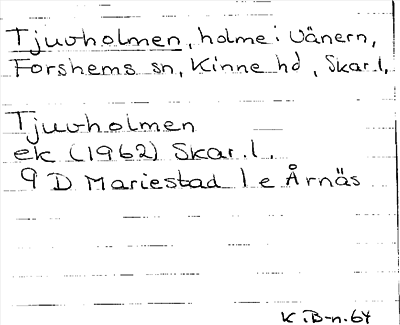 Tjuvholmen, holme i Vänern,
Forshems sn, Kinne hd, Skar.l.
Tjuvholmen
ek (1962) Skar.l.
9 D Mariestad 1 e Årnäs
K.B-n.64